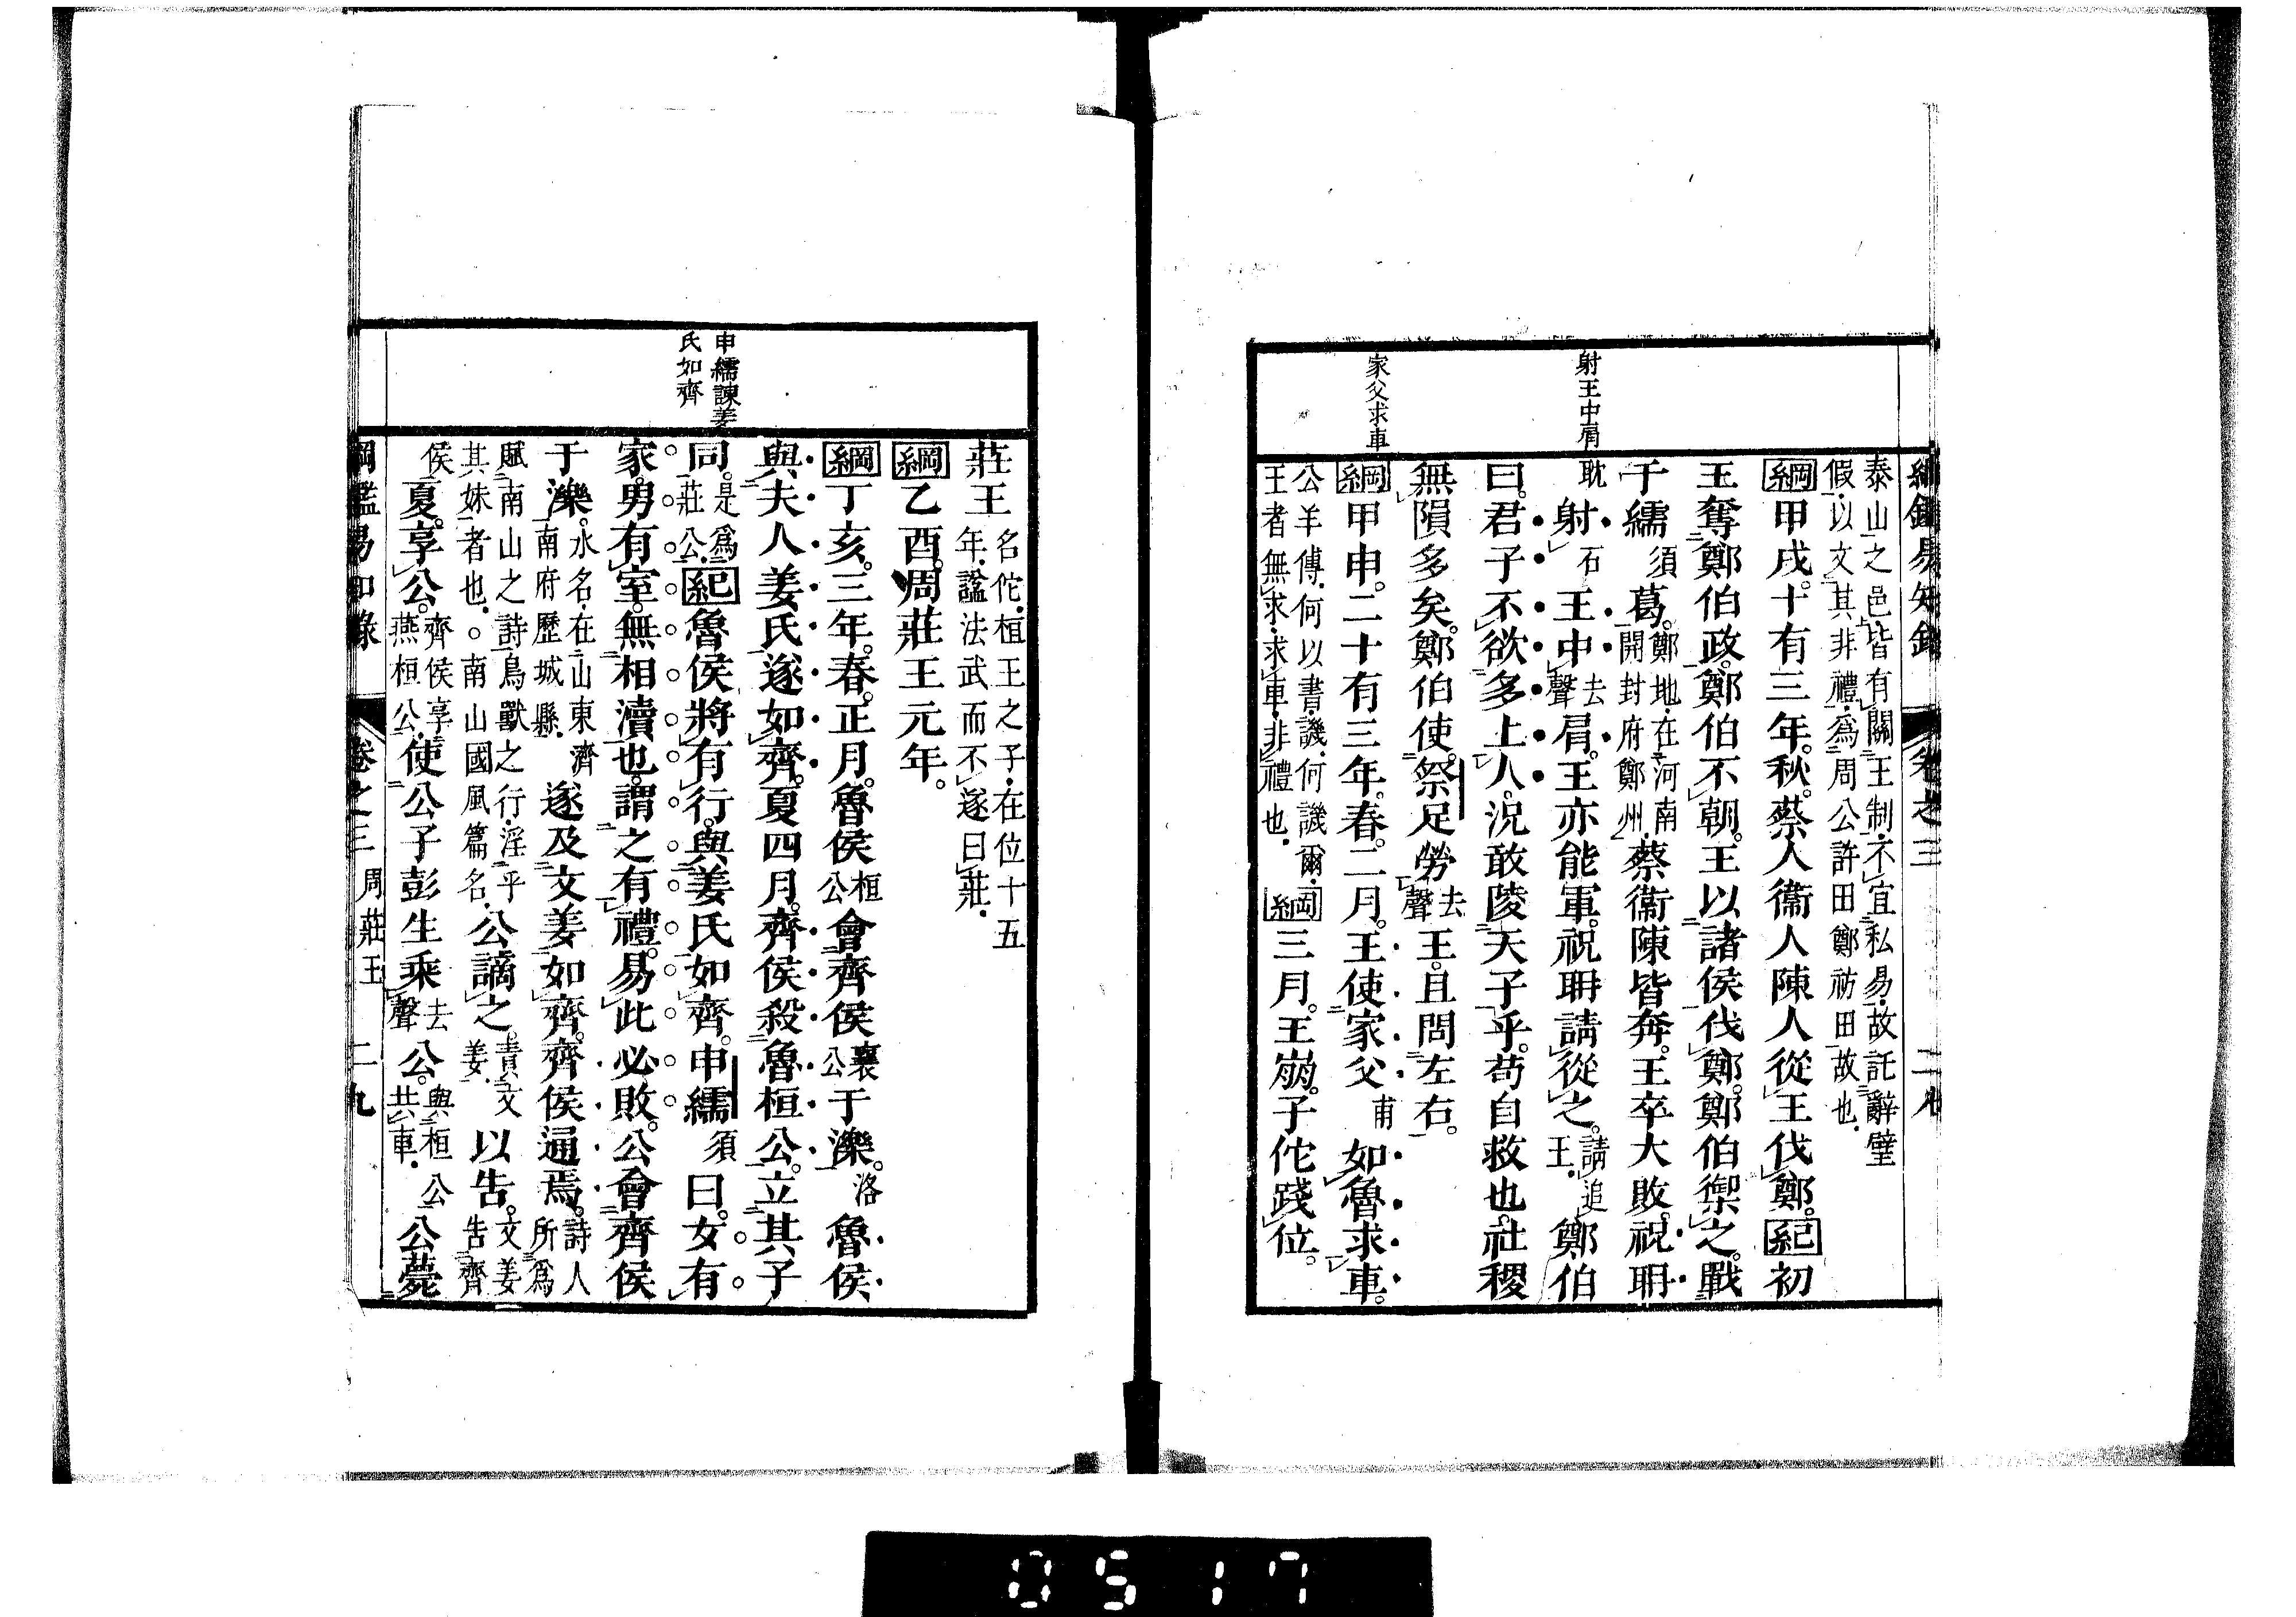 綱鑑易知錄 卷之三 二八
泰山之邑皆有關王制不宜私易故託辭璧
假以文其非禮爲周公許田鄭祊田故也
綱甲戌。十有三年。秋。蔡人衞人陳人從王伐鄭。紀初
王奪鄭伯政。鄭伯不朝。王以諸侯伐鄭。鄭伯禦之。戰
于繻須葛。鄭地在河南開封府鄭州蔡衞陳皆奔。王卒大敗。祝聃
射王中肩
耽射石王中去聲肩。王亦能軍。祝聃請從之。請追王鄭伯
曰。君子不欲多上人。況敢陵天子乎。苟自救也。社稷
無隕多矣。鄭伯使祭足勞去聲王。且問左右。
家父求車
綱甲申。二十有三年。春。二月。王使家父甫如魯求車。
公羊傳何以書譏何譏爾王者無求求車非禮也綱三月。王崩。子佗踐位。
莊王名佗桓王之子在位十五年謚法武而不遂曰莊
綱乙酉。周莊王元年。
綱丁亥。三年。春。正月。魯侯桓公會齊侯襄公于濼。洛魯侯
與夫人姜氏遂如齊。夏四月。齊侯殺魯桓公。立其子
申繻諫姜
氏如齊
同。是爲莊公紀魯侯將有行。與姜氏如齊。申繻須曰。女有
家。男有室。無相瀆也。謂之有禮。易此必敗。公會齊侯
于濼。水名在山東濟南府歷城縣遂及文姜如齊。齊侯通焉。詩人所爲
賦南山之詩鳥獸之行淫乎其妹者也○南山國風篇名公謫之。責文姜以告。文姜告齊
侯夏。享公。齊侯享燕桓公使公子彭生乘去聲公。與桓公共車公薨
綱鑑易知錄 卷之三 周莊王 二九
0517